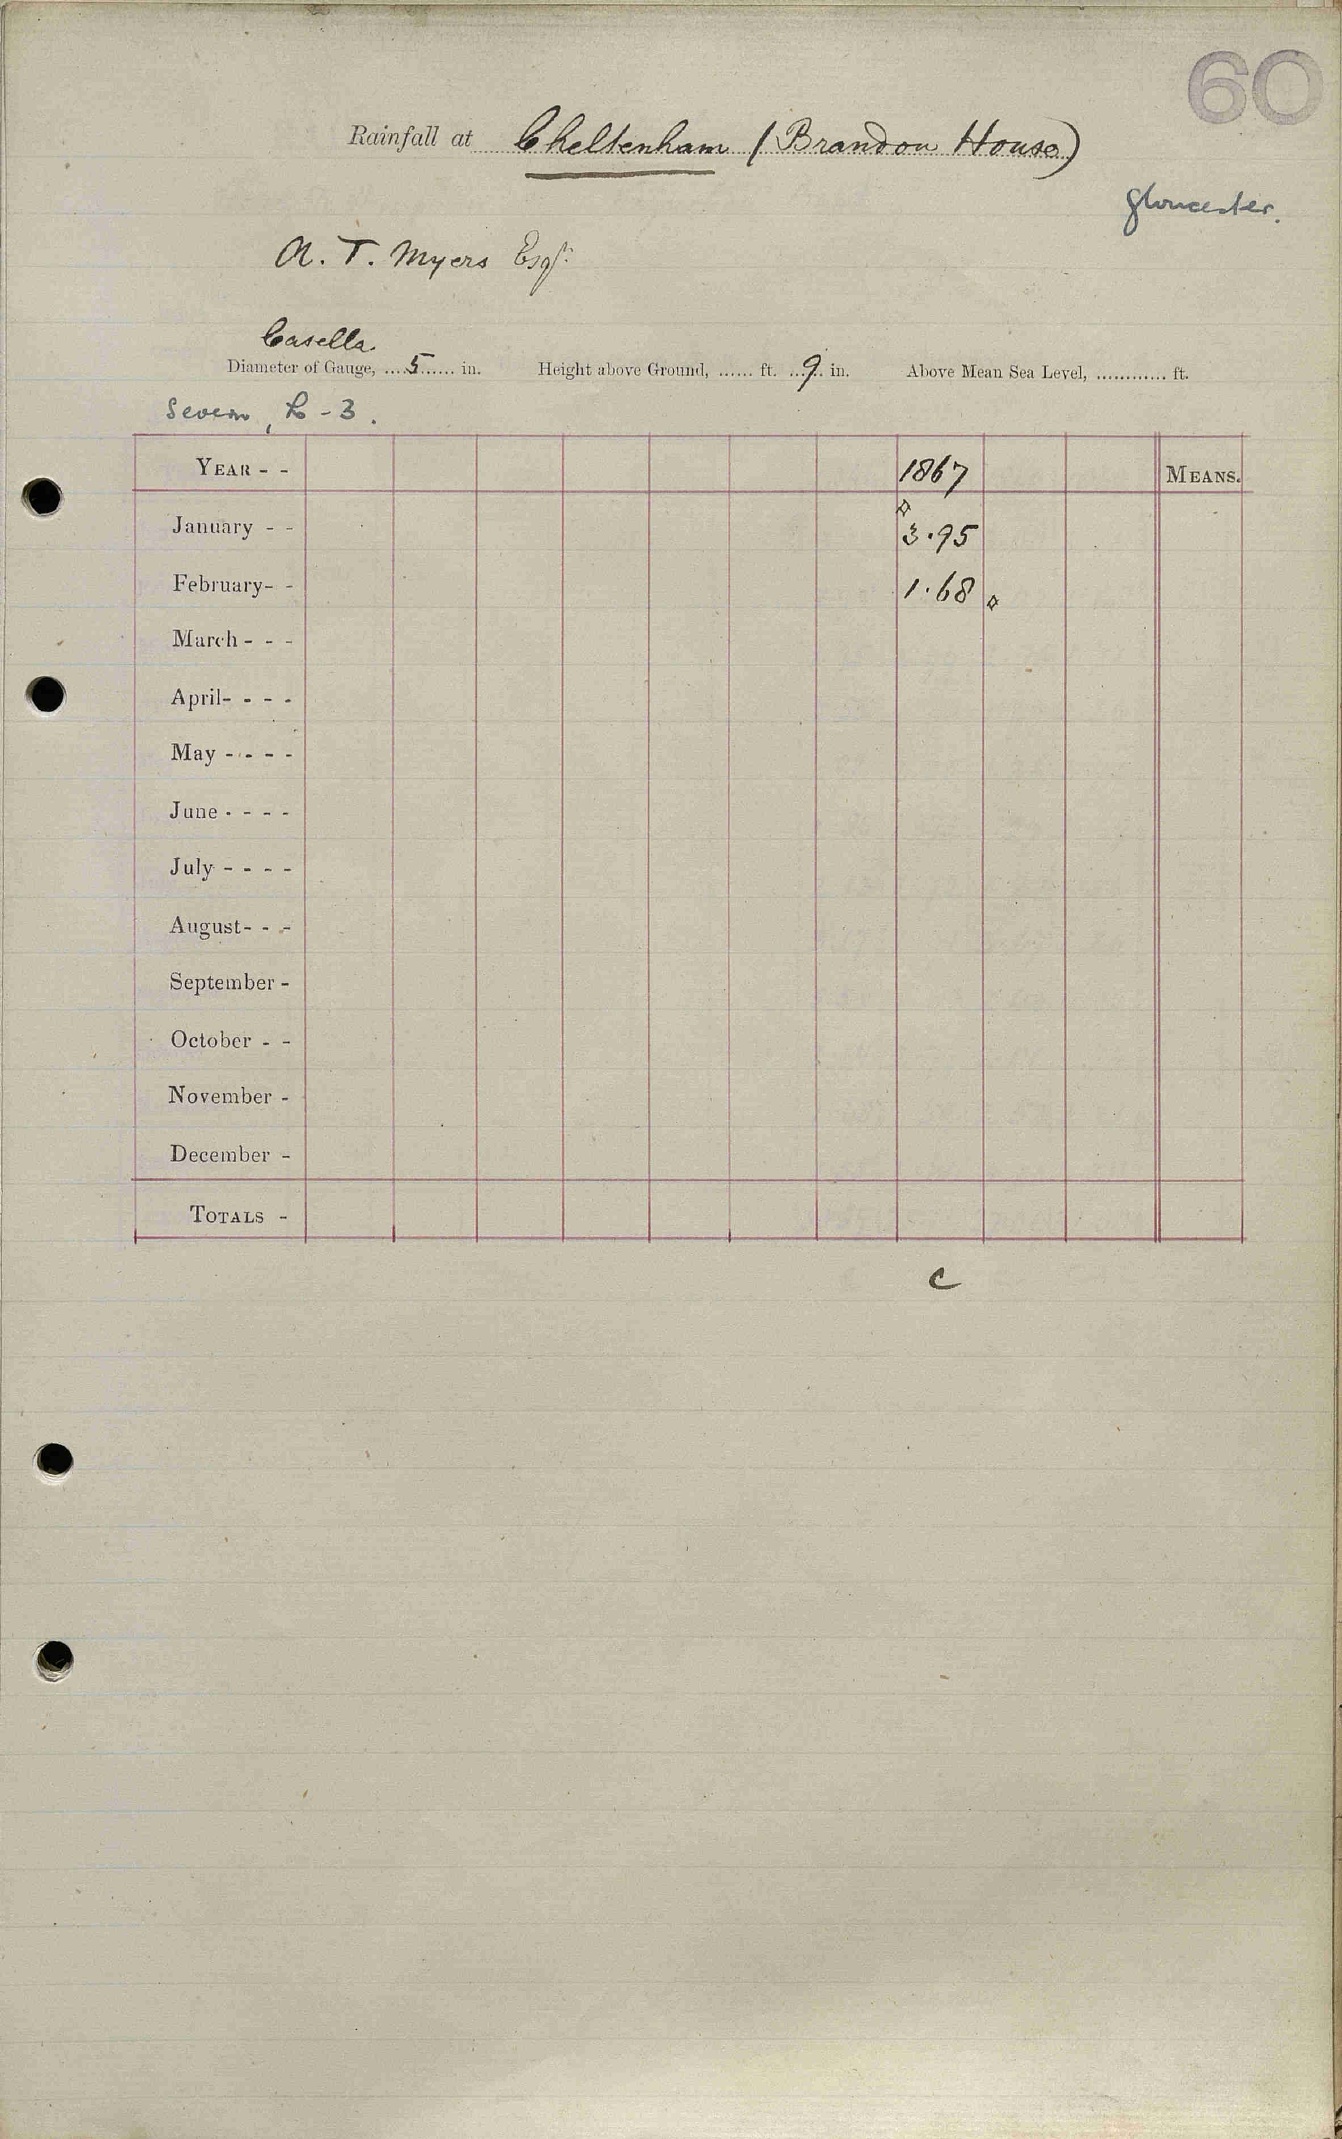 60
Rainfall at Cheltenham (Brandon House)
Gloucester.
A. T. Myers Esqr.
Casella.
Diameter of Gauge, ....5...... in. Height above Ground, ...... ft. ...9... in. Above Mean Sea Level, ............ ft.
Severn, L - 3.
YEAR - - 1867 MEANS.
January - - 3.95
February - - 1.68
March - - -
April - - - -
May - - - -
June - - - -
July - - - -
August - - -
September -
October - -
November -
December -
TOTALS -
c